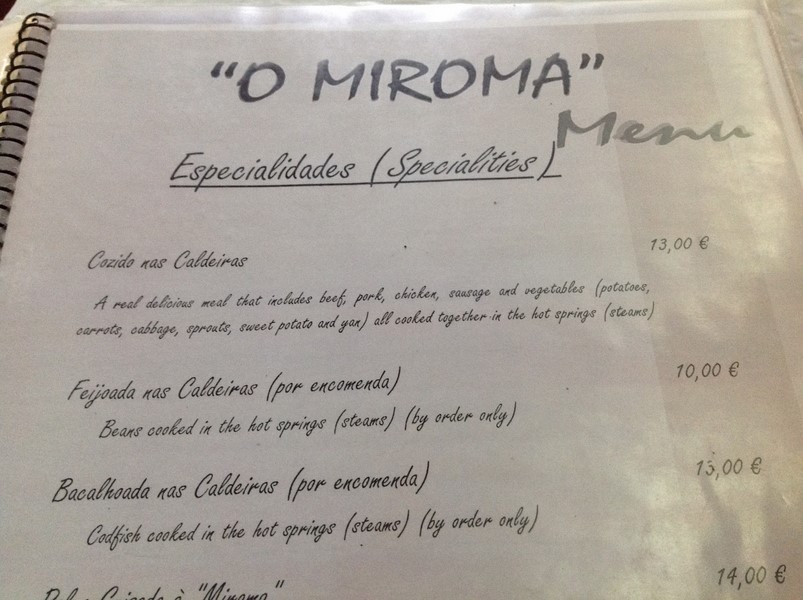 "O MIROMA"
Menu
Especialidades (Specialities)
Cozido nas Caldeiras 13,00 €
A real delicious meal that includes beef, pork, chicken, sausage and vegetables (potatoes,
carrots, cabbage, sprouts, sweet potato and yan) all cooked together in the hot springs (steams)
Feijoada nas Caldeiras (por encomenda) 10,00 €
Beans cooked in the hot springs (steams) (by order only)
Bacalhoada nas Caldeiras (por encomenda) 15,00 €
Codfish cooked in the hot springs (steams) (by order only)
à "Miroma" 14,00 €